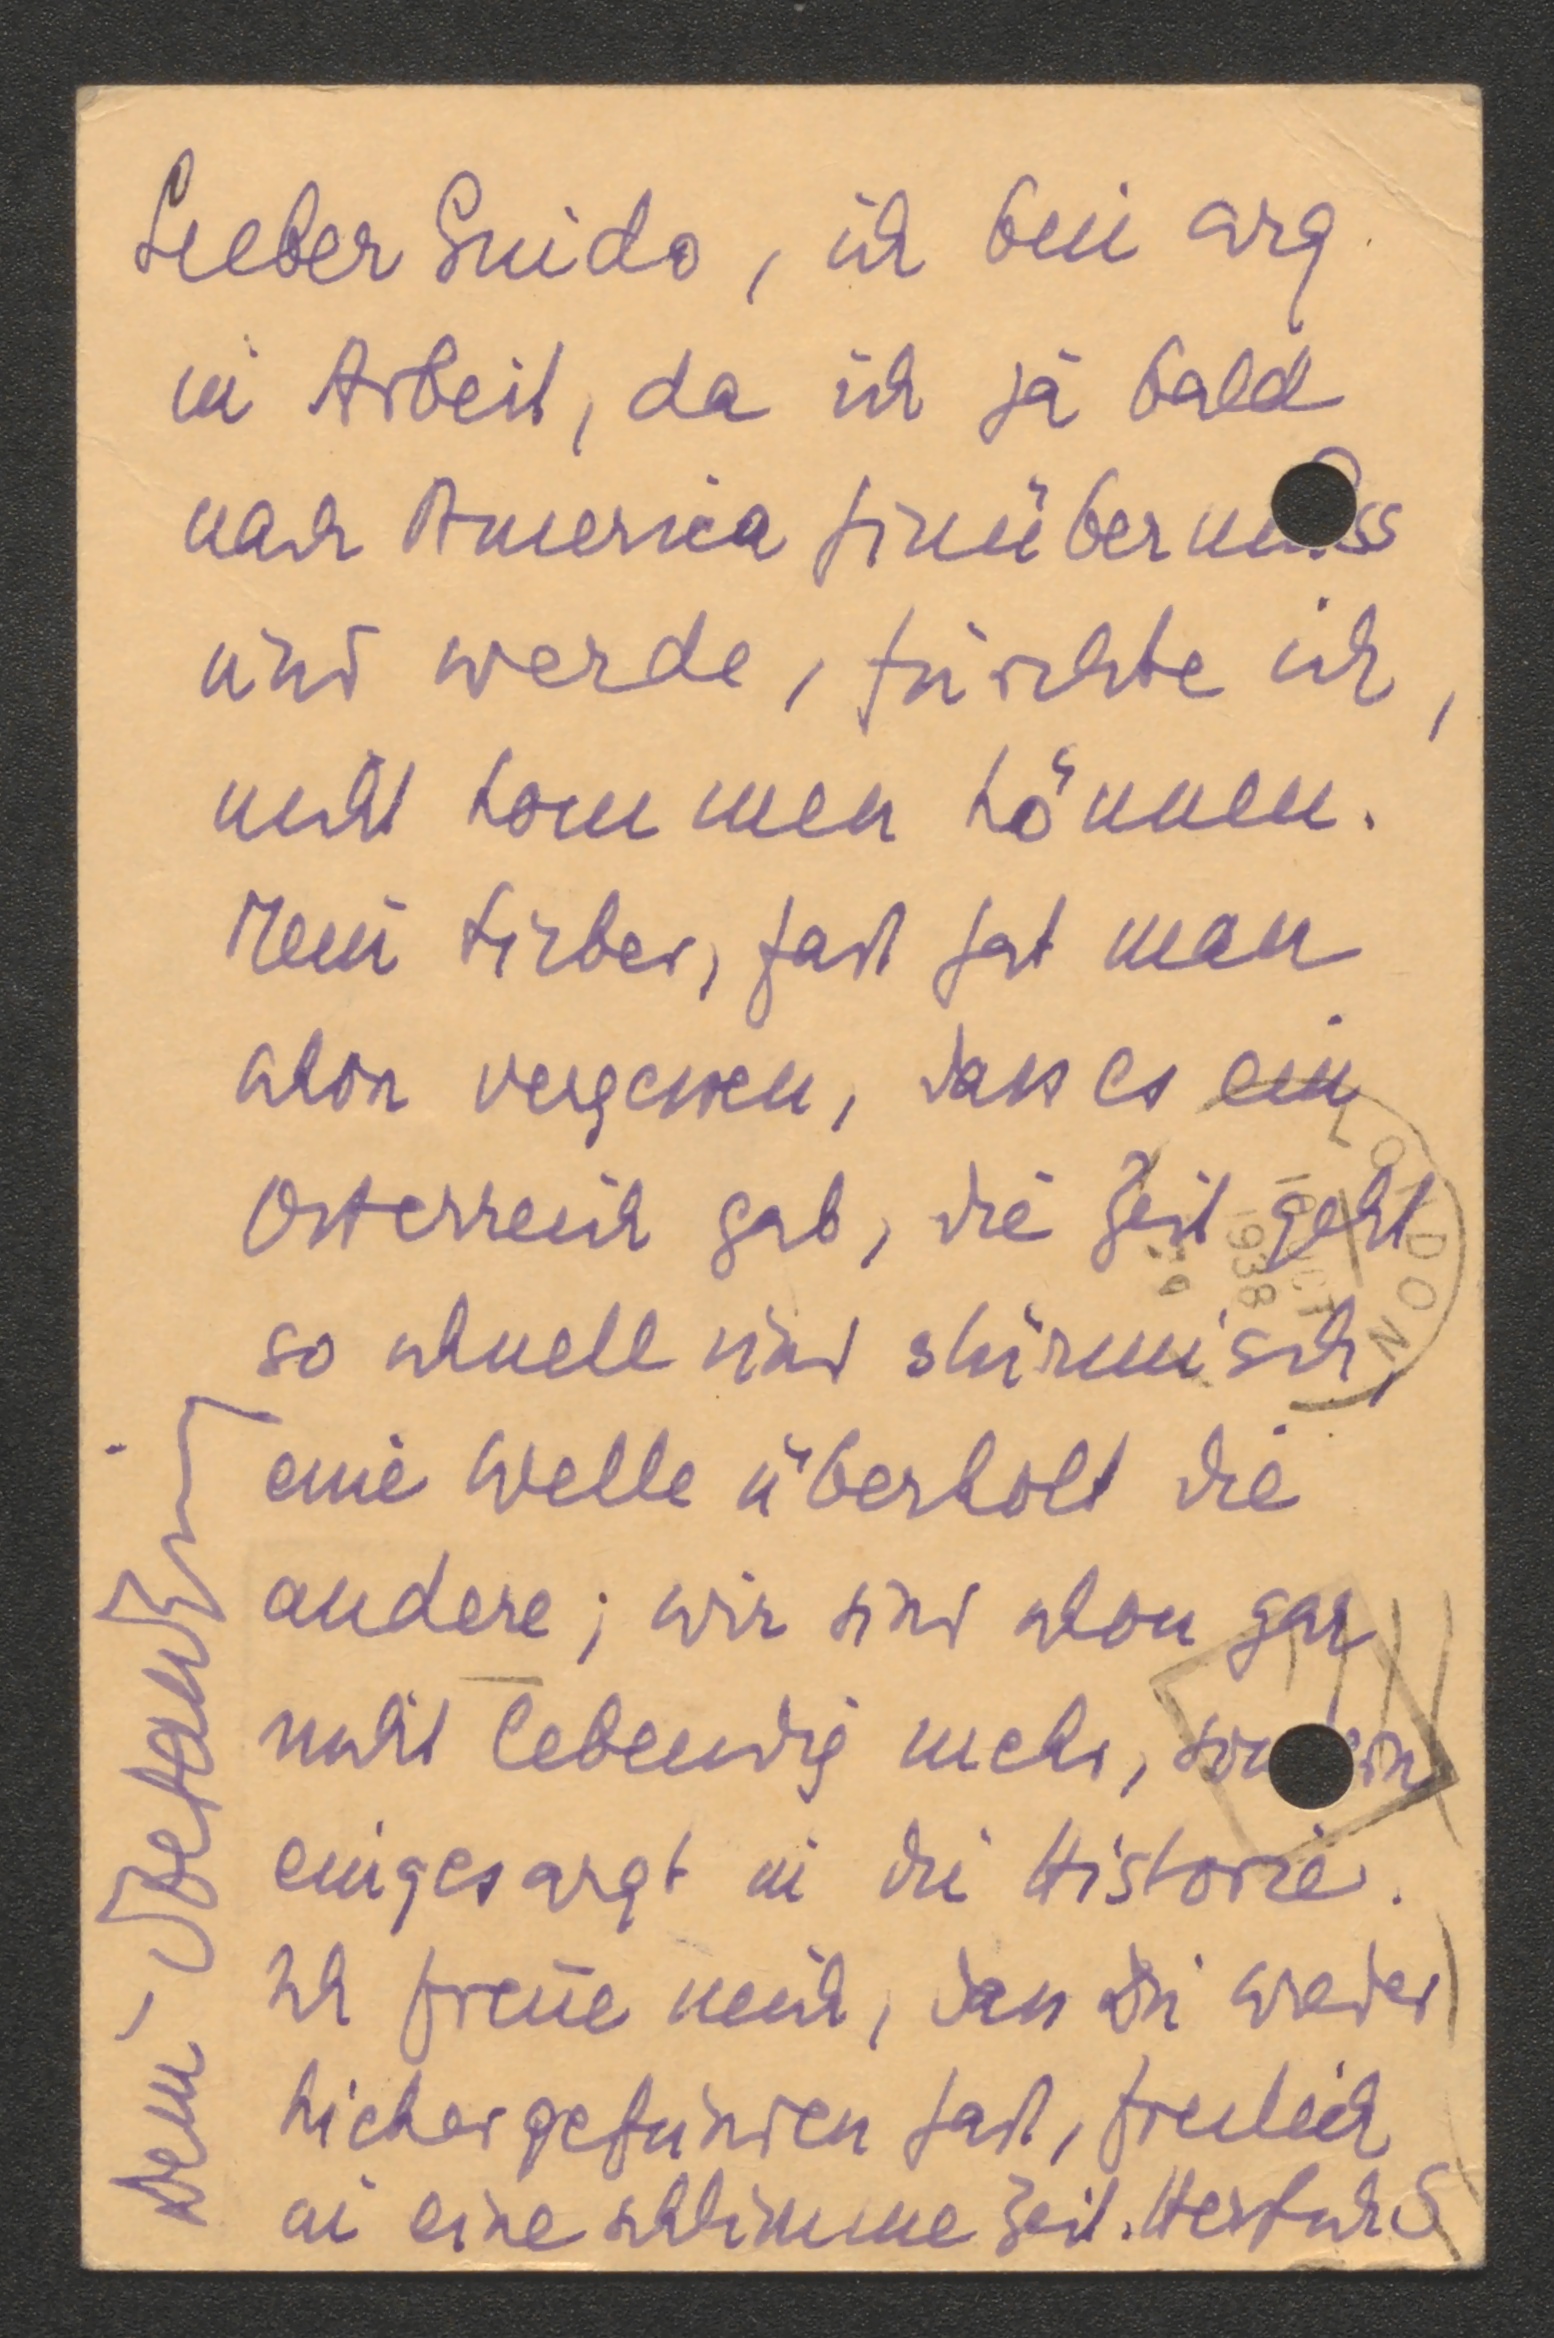 Lieber Guido, ich bin arg
in Arbeit, da ich ja bald
nach America hinüber muss
und werde, fürchte ich,
nicht kommen können.
Mein Lieber, fast hat man
schon vergessen, dass es ein
Osterreich gab, die Zeit geht
so schnell und stürmisch,
eine Welle überholt die
andere; wir sind schon gar
nicht lebendig mehr, sondern
eingesargt in die Historie.
Ich freue mich, dass Du wieder
hierher gefunden hast, freilich
in eine schlimme Zeit. Herzlichst
Dein Stefan Zweig
LONDON
OCT
1938